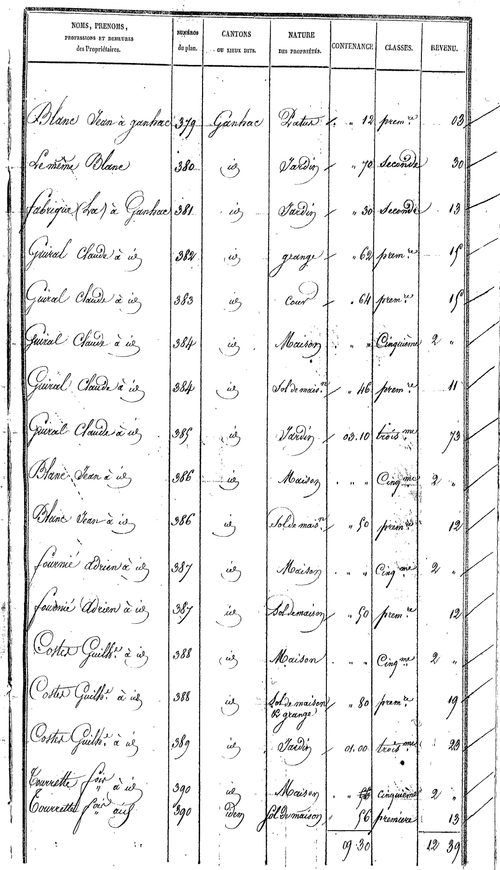 NOMS, PRÉNOMS, PROFESSIONS ET DEMEURES des Propriétaires. NUMÉROS du plan. CANTONS OU LIEUX DITS. NATURE DES PROPRIÉTÉS. CONTENANCE. CLASSES. REVENU.
Blanc Jean à Ganhac 379 Ganhac Patus " 12 prem.re 03
Le même Blanc 380 id Jardin " 70 Seconde 30
fabrique (La) à Ganhac 381 id Jardin " 30 Seconde 13
Guiral Claude à id 382 id grange " 62 prem.re 15
Guiral Claude à id 383 id cour " 64 prem.re 15
Guiral Claude à id 384 id Maison " " Cinquième 2 "
Guiral Claude à id 384 id Sol de mais.n " 46 prem.re 11
Guiral Claude à id 385 id Jardin 03.10 trois.me 73
Blanc Jean à id 386 id Maison " " Cinq.me 2 "
Blanc Jean à id 386 id Sol de mais.n " 50 prem.re 12
fournié adrien à id 387 id Maison " " Cinq.me 2 "
fournié Adrien à id 387 id Sol de maison " 50 prem.re 12
Costes Guilh.e à id 388 id Maison " " Cinq.me 2 "
Costes Guilh.e à id 388 id Sol de maison " 80 prem.re 19
& grange
Costes Guilh.e à id 389 id Jardin 01.00 trois.me 23
Tourrette à id 390 id Maison " cinquième 2 "
Tourrette 390 Idem Sol de maison 56 première 13
09 30 12 39